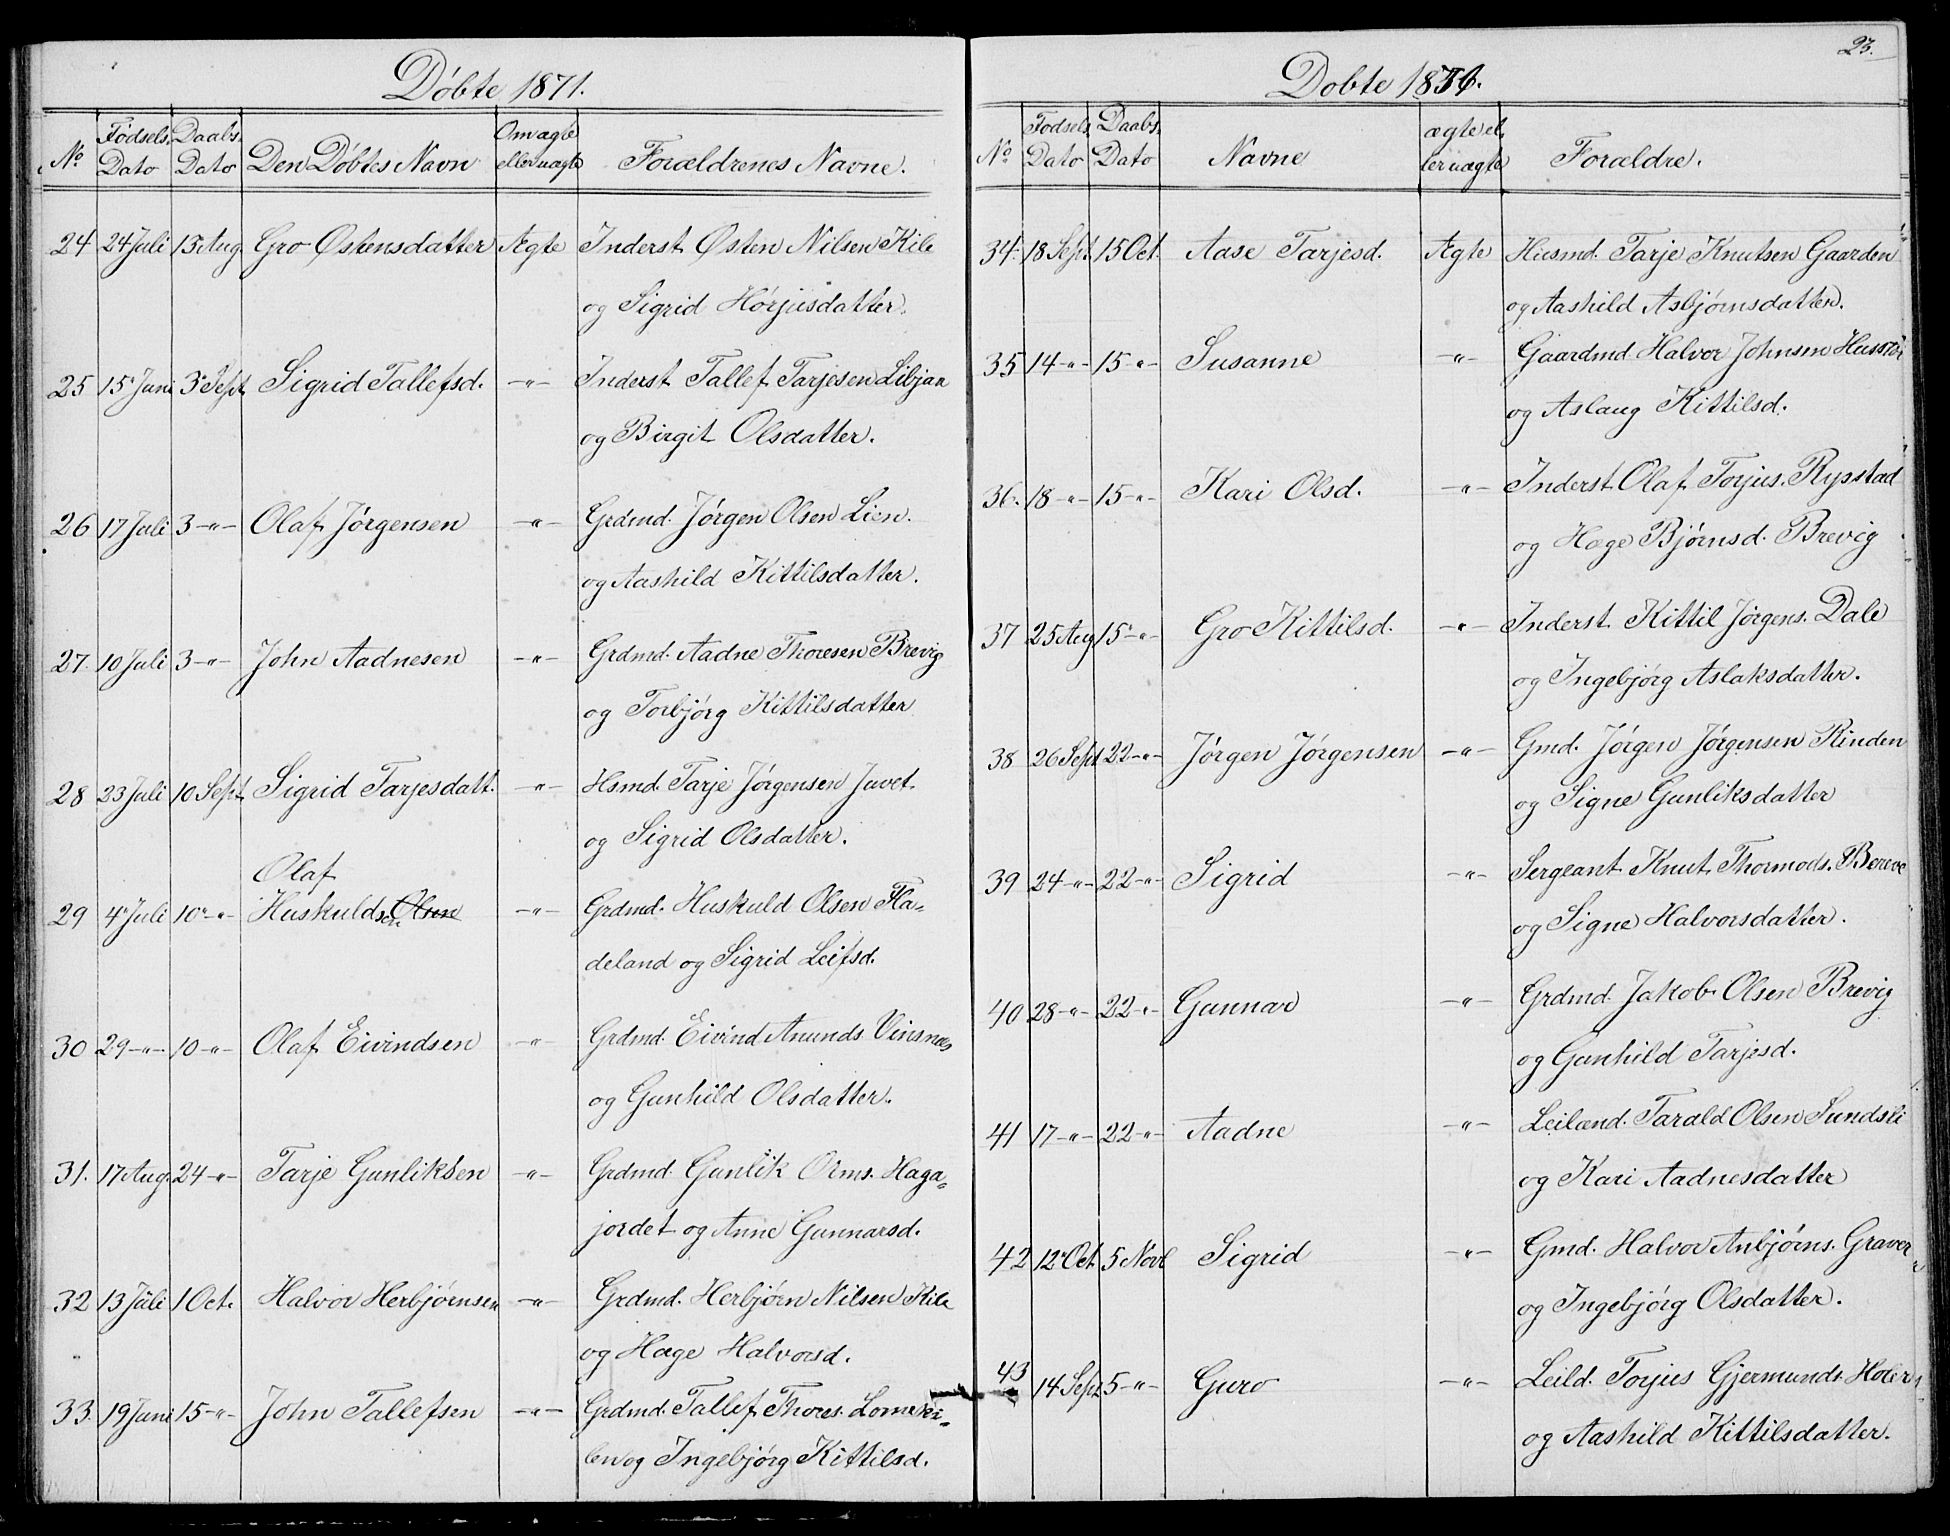 Døbte 1871.
No Fødsels Dato Daabs Dato Den Døbtes Navn Om ægte eller uægte Forældrenes Navne.
24 24 Juli 13 Aug. Gro Østensdatter Ægte Inderst Østen Nilsen Kile
og Sigrid Hørjusdatter.
25 15 Juni 3 Sept. Sigrid Tallefsd. -"- Inderst Tallef Tarjesen Libjan
og Birgit Olsdatter.
26 17 Juli 3 -"- Olaf Jørgensen -"- Grdmd. Jørgen Olsen Lien.
og Aashild Kittilsdatter.
27. 10 Juli 3 -"- John Aadnesen -"- Grdmd. Aadne Thoresen Brevig
og Torbjørg Kittilsdatter
28 23 Juli 10 Sept. Sigrid Tarjesdatt. -"- Hsmd. Tarje Jørgensen Juvet.
og Sigrid Olsdatter.
Olaf
29 4 Juli 10 -"- Huskuldsen Olsen -"- Grdmd. Huskuld Olsen Fla-
deland og Sigrid Leifsd.
30 29 -"- 10 -"- Olaf Eivindsen -"- Grdmd. Eivind Anunds. Vinsnes
og Gunhild Olsdatter.
31. 17 Aug. 24 -"- Tarje Gunliksen -"- Grdmd. Gunlik Orms. Haga-
jordet og Anne Gunnarsd.
32 13 Juli 1 Oct. Halvor Herbjørnsen -"- Grdmd. Herbjørn Nilsen Kile
og Hæge Halvorsd.
33. 19 Juni 15 -"- John Tallefsen -"- Grdmd. Tallef Thores. Lomeki-
len og Ingebjørg Kittilsd.
23.
Døbte 1871.
No Fødsels Dato Daabs Dato Navne ægte el. ler uægte Forældre.
34. 18 Sept. 15 Oct. Aase Tarjesd. Ægte Husmd. Tarje Knutsen Gaarden
og Aashild Asbjørnsdatter.
35 14 -"- 15 -"- Susanne -"- Gaardmd. Halvor Johnsen
og Aslaug Kittilsd.
36. 18 -"- 15 -"- Kari Olsd. -"- Inderst Olaf Torjus. Rypstad
og Hæge Bjørnsd. Brevig
37 25 Aug 15 -"- Gro Kittilsd. -"- Inderst. Kittil Jørgens. Dale
og Ingebjørg Aslaksdatter.
38 26 Sept 22 -"- Jørgen Jørgensen -"- Gmd. Jørgen Jørgensen Rinden
og Signe Gunliksdatter
39 24 -"- 22 -"- Sigrid -"- Sergeant Knut Thormods. Bereve
og Signe Halvorsdatter.
40 28 -"- 22 -"- Gunnar -"- Grdmd. Jakob Olsen Brevig
og Gunhild Tarjesd.
41 17 -"- 22 -"- Aadne -"- Leilænd. Tarald Olsen Sundsli
og Kari Aadnesdatter
42 12 Oct. 5 Novb Sigrid -"- Gmd. Halvor Anbjørns. Graver
og Ingebjørg Olsdatter.
43 14 Sept 5 -"- Guro -"- Leild. Torjus Gjermunds.
og Aashild Kittilsdatter.